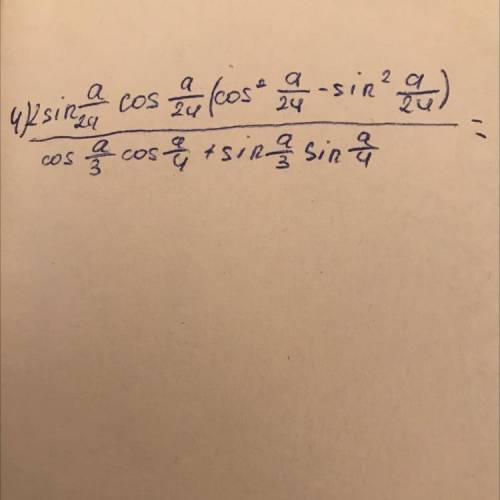 4) 2 sin a/24 cos a/24 (cos² a/24 - sin² a/24)
cos a/3 cos a/4 + sin a/3 sin a/4 =